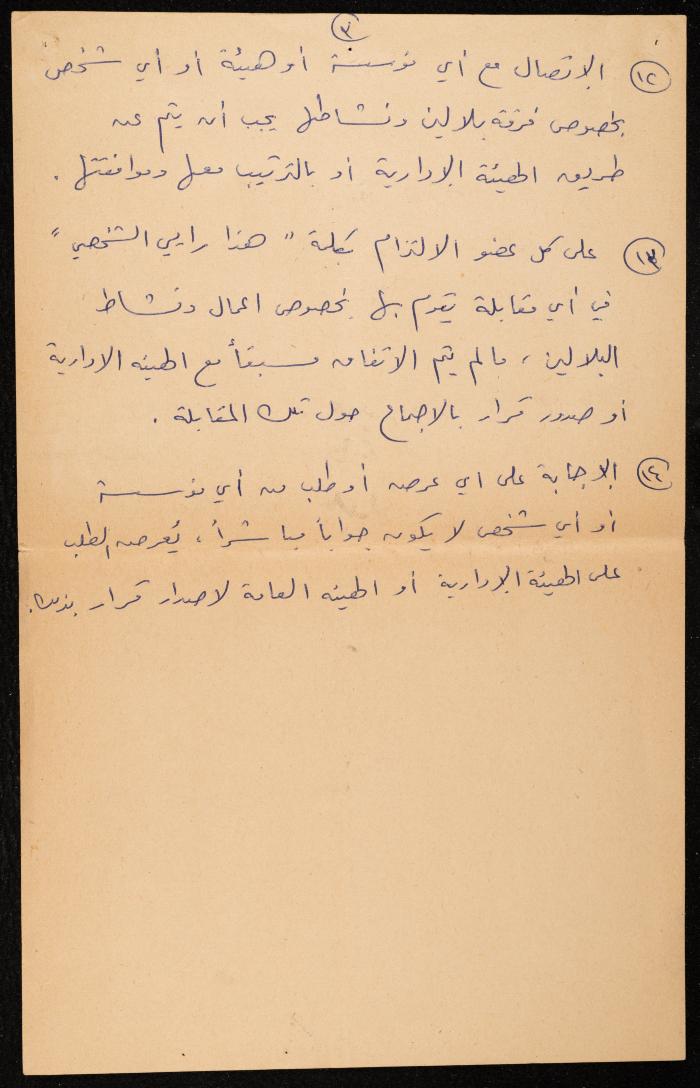 ٣
١٢ الاتصال مع أي مؤسسة أو هيئة أو أي شخص
بخصوص فرقة بلالين ونشاطها يجب أن يتم عن
طريق الهيئة الإدارية أو بالترتيب معها وموافقتها .
١٣ على كل عضو الالتزام بكلمة " هذا رايي الشخصي "
في أي مقابلة يقوم بها بخصوص اعمال ونشاط
البلالين ، مالم يتم الاتفاق مسبقاً مع الهيئه الادارية
أو صدور قرار بالإجماع حول تلك المقابلة .
١٤ الإجابة على اي عرض أو طلب من أي مؤسسة
أو أي شخص لا يكون جواباً مباشراً ، يُعرض الطلب
على الهيئة الإدارية أو الهيئه العامة لاصدار قرار بذلك .